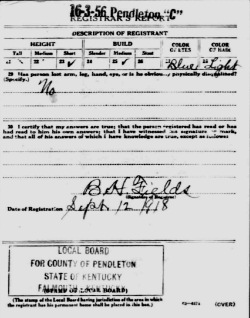 16-3-56 Pendleton "C"
REGISTRAR'S REPORT
DESCRIPTION OF REGISTRANT
HEIGHT BUILD COLOR OF EYES COLOR OF HAIR
Tall Medium Short Slender Medium Stout
21 22 23 ✓ 24 25 26 ✓ 27 Blue 28 Light
29 Has person lost arm, leg, hand, eye, or is he obviously physically disqualified?
(Specify.) No
30 I certify that my answers are true; that the person registered has read or has
had read to him his own answers; that I have witnessed his signature or mark,
and that all of his answers of which I have knowledge are true, except as follows:
B. H. Fields
(Signature of Registrar)
Date of Registration Sept. 12 1918
LOCAL BOARD
FOR COUNTY OF PENDLETON
STATE OF KENTUCKY
FALMOUTH, KENTUCKY
(STAMP OF LOCAL BOARD)
(The stamp of the Local Board having jurisdiction of the area in which
the registrant has his permanent home shall be placed in this box.)
(OVER)